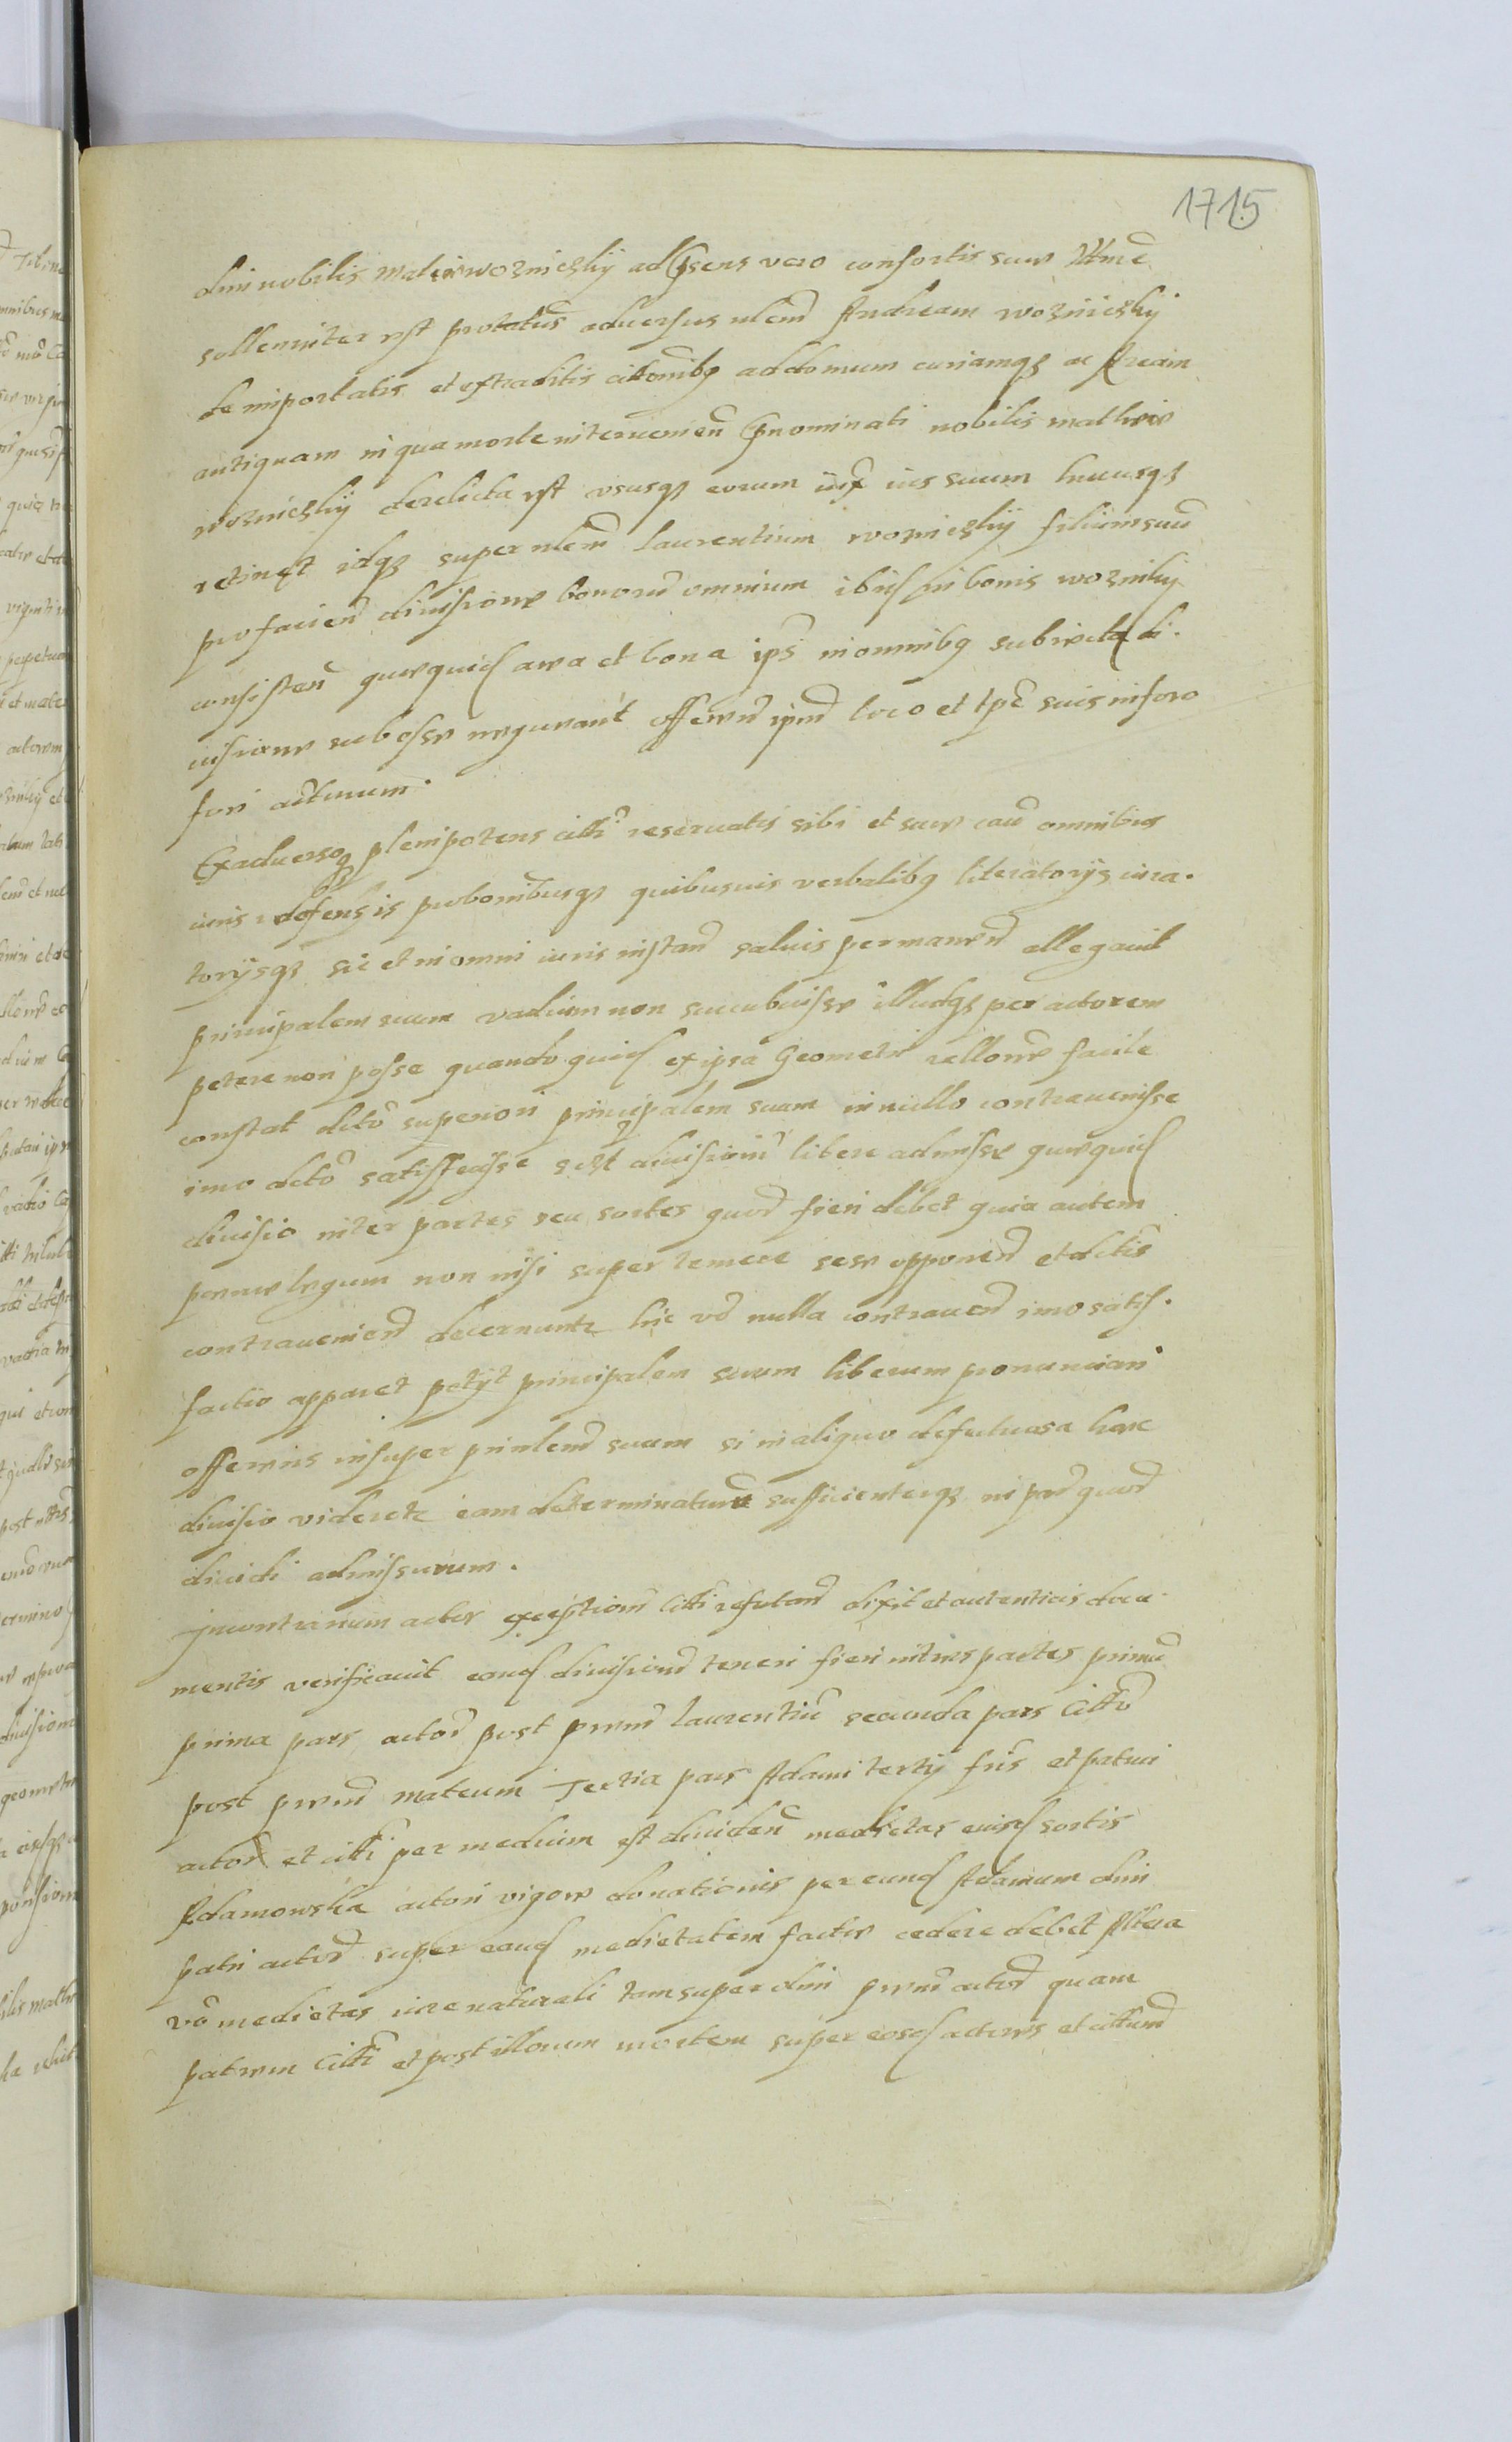 1715
olim nobilis Mathie Wozniczkij ad prsens vero consortis sue Ultime
sollemniter est protestatus adversus nlem Andream Wozniczkij
de importatis et extraditis cittonibq ad domum curiamqz ac Aream
antiquam in qua morte intervenien pnominati nobilis Mathie
Wozniczkij derelicta est ususqz eorum iux ius suum hucusqz
retinet idqz super nlem Laurentium Wozniczkij filium suu
pro facien divisione bonoru omnium ibid in bonis Wozniky
consisten quequid area et bona ips in omnibq subiecta di.
visione subesse nequeant offerend ipm loco et tpe suis in foro
fori acturum.
Ex adversoq plenipotens citti reservatis sibi et sue cau omnibus
iuris defensis probonibusqz quibusvis verbalibq literatorys iura.
torysqz sic et in omni iuris instan salvis permanend allegavit
principalem suum vadium non succubuisse illudqz per actorem
petere non posse quando quid ex ipsa Geometri rellone facile
constat dcto superiori principalem suum in nullo contravenisse
imo dcto satisfecisse scilt divisionem libere admisse quequid
divisio inter partes seu sortes quod fieri debet quia autem
pene legum non nisi super temere sese opponend et dctis
contraveniend decernuntr hic vo nulla contravend imo satis.
factio apparet petyt principalem suum liberum pronunciari
offerens insuper prinlem suum si in aliquo defectuosa haec
divisio videretr eam determinatum sufficienterqz in pad quod
dividi admissurum.
In contrarium actor exceptionem citti refutand dixit et autenticis docu-
mentis verificavit eand divisionem teneri fieri in tres partes primu
prima pars actord post prem Laurentiu secunda pars Citto
post prem Mateum Tertia pars Adami tertij fris et patrui
actord et citti per medium est dividen medietas eiusd sortis
Adamowska actori vigore donationis per eund Adamum olim
patri actord super eand medietatem facte cedere debet Altera
vo medietas iure naturali tam super olim prem actord quam
patrem Citti et post illorum mortem super eosd actores et cittum